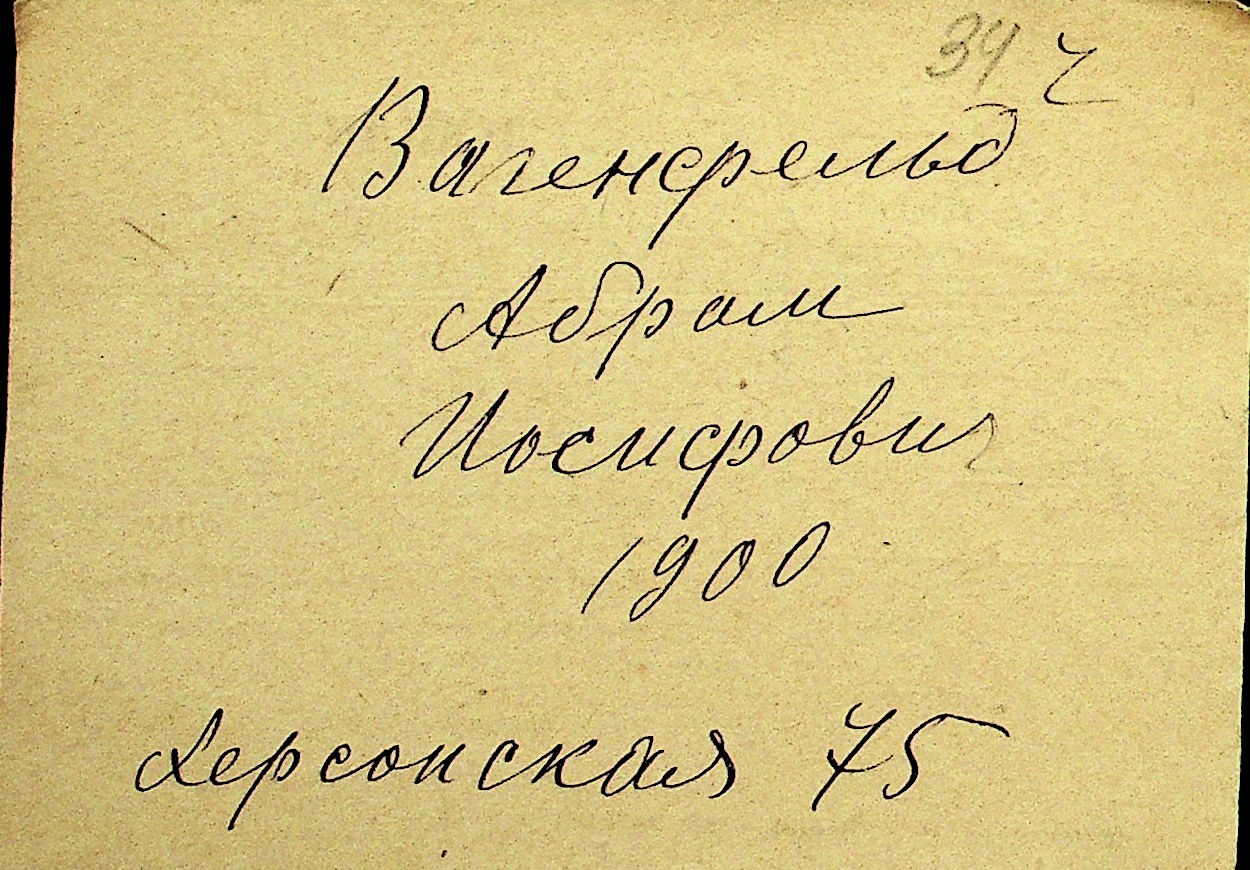 34
Вагенфельд
Абрам
Иосифович
1900
Херсонская 75